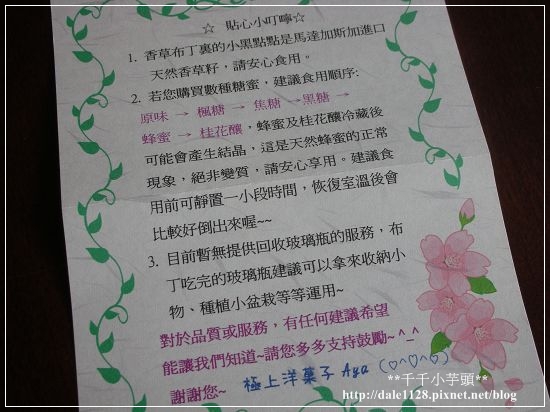 ☆ 貼心小叮嚀☆
1. 香草布丁裏的小黑點點是馬達加斯加進口
天然香草籽，請安心食用。
2. 若您購買數種糖蜜，建議食用順序:
原味 → 楓糖 → 焦糖 →黑糖→
蜂蜜 → 桂花釀，蜂蜜及桂花釀冷藏後
可能會產生結晶，這是天然蜂蜜的正常
現象，絕非變質，請安心享用。建議食
用前可靜置一小段時間，恢復室溫後會
比較好倒出來喔~~
3. 目前暫無提供回收玻璃瓶的服務，布
丁吃完的玻璃瓶建議可以拿來收納小
物、種植小盆栽等等運用~
對於品質或服務，有任何建議希望
能讓我們知道~請您多多支持鼓勵~^_^
謝謝您~ 極上洋菓子 Aya (♡^♡^♡)
**千千小芋頭**
http://dale1128.pixnet.net/blog